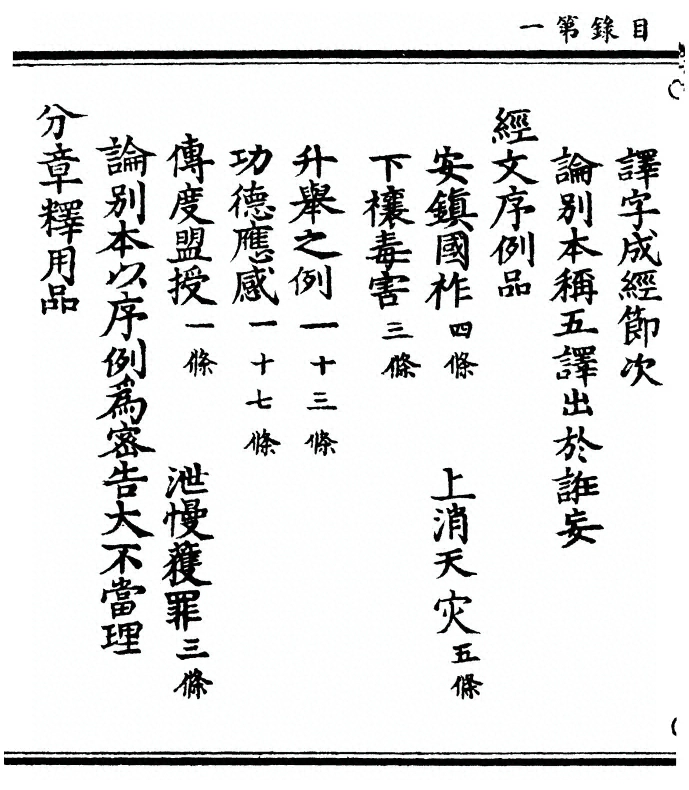 目錄第一
譯字成經節次
論別本稱五譯出於誑妄
經文序例品
安鎮國祚四條 上消天灾五條
下禳毒害三條
升舉之例一十三條
功德應感一十七條
傳度盟授一條 泄慢獲罪三條
論別本以序例為密告大不當理
分章釋用品